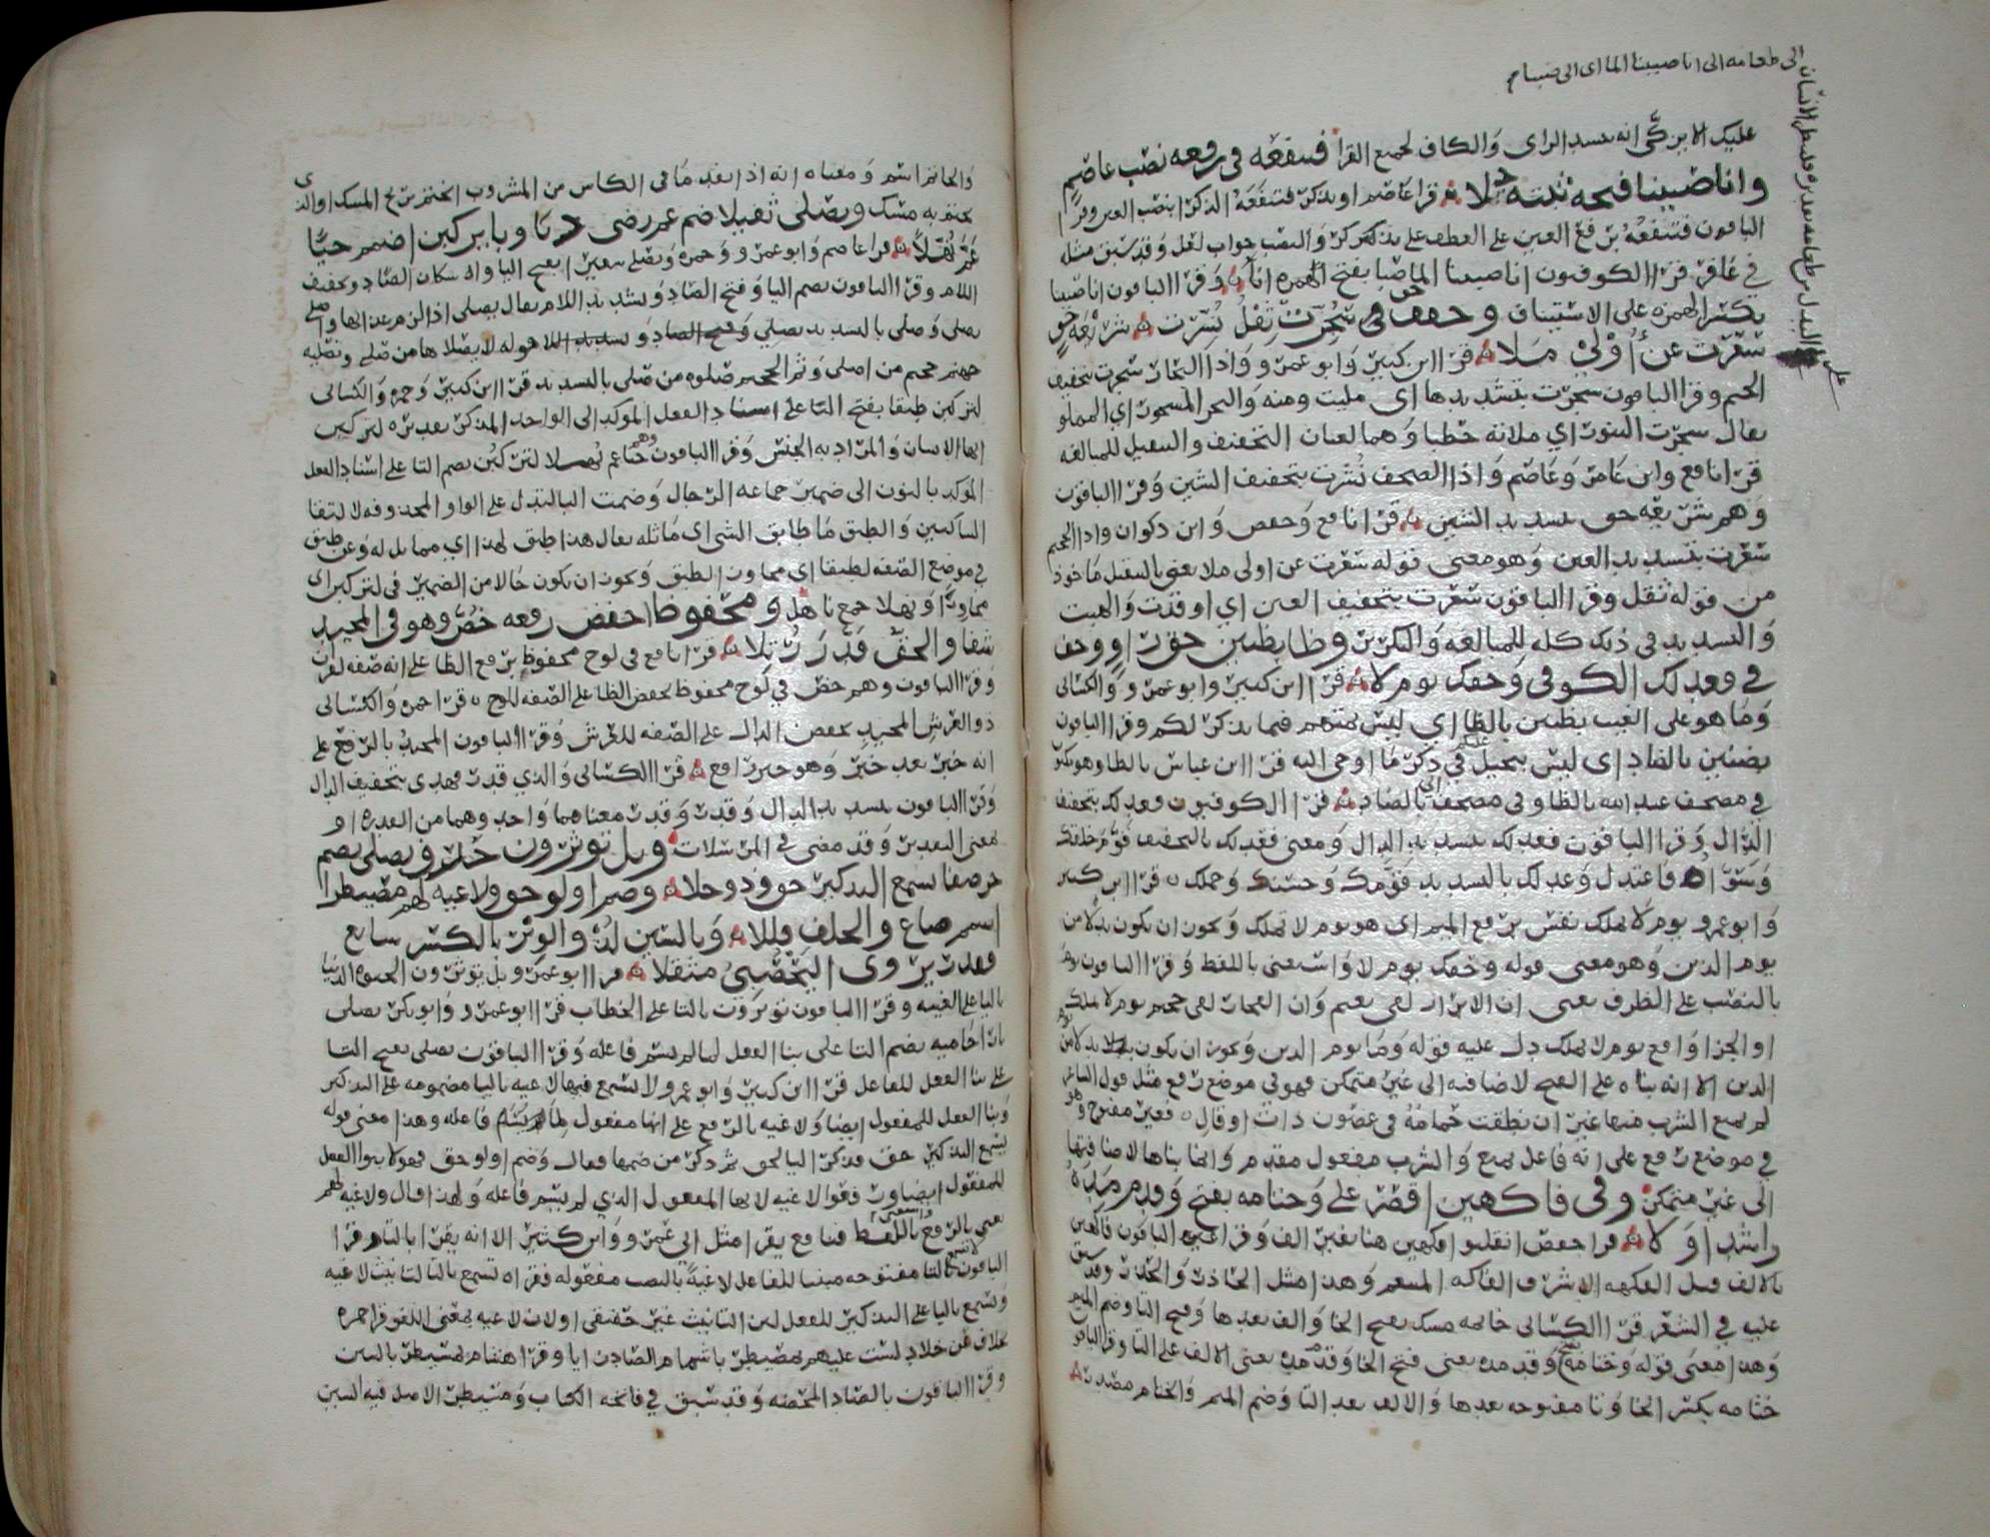 الى طعامه الى انا صببنا الماء اى الى صبنا م
على البدل من طعامه تقديره فلينظر الانسان
عليك الا ابن كثير انه بتشديد الزاى والكاف لجميع القرا فتنفعه فى رفعه نصب عاصم
وانا صببنا فتحه ثبته تلا قرا عاصم او يذكر فتنفعه الذكرى بنصب العين وقرا
الباقون فتنفعه برفع العين على العطف على يذكر والنصب جواب لعل وقد سبق مثله
في غافر قرا الكوفيون انا صببنا الما صبا بفتح الهمزه انا وقرا الباقون انا صببنا
بكسر الهمزه على الاستيناف وخفف حق سجرت ثقل نشرت شريعه حق
سعرت عن أولي ملا قرا ابن كثير وابو عمرو واذا البحار سجرت بتخفيف
الجيم وقرا الباقون سجرت بتشديدها اى مليت ومنه والبحر المسجور اي المملو
يقال سجرت التنور اي ملاته حطبا وهما لغتان التخفيف والتثقيل للمبالغه
قرا نافع وابن عامر وعاصم واذا الصحف نشرت بتخفيف الشين وقرا الباقون
وهم شريعه حق بتشديد الشين قرا نافع وحفص وابن ذكوان واذا الجحيم
سعرت بتشديد العين وهو معنى قوله سعرت عن اولى ملا يعني بالتثقيل ماخوذ
من قوله ثقل وقرا الباقون سعرت بتخفيف العين اي اوقدت والهبت
والتشديد في ذلك كله للمبالغه والتكرير وظا بظنين حق راو وخف
في فعدلك الكوفى وحقك يوم لا قرا ابن كثير وابو عمرو والكسائى
وما هو على الغيب بظنين بالظا اي ليس بمتهم فيما يذكر لكم وقرا الباقون
بضنين بالضاد اى ليس ببخيل في ذكر ما اوحى اليه قرا ابن عباس بالظا وهو
في مصحف عبد الله بالظا وفى مصحف ابى بالضاد قرا الكوفيون فعدلك بتخفيف
الدال وقرا الباقون فعدلك بتشديد الدال ومعنى فعدلك بالتخفيف قوم خلقك
وسوا فاعتدل وعدلك بالتشديد قومك وحسنك وجملك قرا ابن كثير
وابو عمرو يوم لا تملك نفس برفع الميم اى هو يوم لا تملك ويجوز ان يكون بدلا من
يوم الدين وهو معنى قوله وحقك يوم لا واستغنى باللفظ وقرا الباقون يوم
بالنصب على الظرف يعنى ان الابرار لفى نعيم وان الفجار لفى جحيم يوم لا تملك
او الجزا واقع يوم لا تملك دل عليه قوله وما يوم الدين ويجوز ان يكون بدلا من
الدين الا انه بناه على الفتح لاضافته الى غير متمكن فهو فى موضع رفع مثل قول الشاعر
لم يمنع الشرب منها غير ان نطقت حمامة فى غصون ذات اوقال فغير مفتوح وهو
في موضع رفع على انه فاعل يمنع والشرب مفعول مقدم وانما بناها لاضافتها
الى غير متمكن وفى فاكهين اقصر على وختامه بفتح وقدم مده
راشدا ولا قرا حفص انقلبوا فكهين هنا بغير الف وقرا الباقون فاكهين
بالالف قيل الفكه الاشر والفاكه المتنعم وهذا مثل الحاذر والحذر وقد سبق
عليه في الشعر قرا الكسائى خاتمه مسك بفتح الخا والف بعدها وفتح التا وضم الميم
وهذا معنى قوله وختامه بفتح وقدم مده يعنى فتح الخا وقدم مده يعنى الالف على التا وقرا الباقون
ختامه بكسر الخا وتا مفتوحه بعدها والالف بعد التا وضم الميم والختام مصدر
والخاتم اسم ومعناه انه اذا نفد ما فى الكاس من المشروب انختم بريح المسك او الذى
يختم به مسك ويصلى ثقيلا ضم عم رضى دنا وبا يركبن اضمم حيا
عم نهلا قرا عاصم وابو عمرو وحمزه ويصلى سعيرا بفتح اليا واسكان الصاد وتخفيف
اللام وقرا الباقون بضم اليا وفتح الصاد وتشديد اللام يقال يصلى اذا لزم عذابها واصلى
يصلى وصلى بالتشديد يصلى وفتح الصاد وتشديد اللام قوله لا يصلاها من صلى وتصليه
جهنم جحيم من اصلى وثم الجحيم صلوه من صلى بالتشديد قرا ابن كثير وحمزه والكسائى
لتركبن طبقا بفتح البا على اسناد الفعل الموكد الى الواحد المذكر تقديره لتركبن
ايها الانسان والمراد به الجنس وقرا الباقون وهم حيا عم نهلا لتركبن بضم البا على اسناد الفعل
الموكد بالنون الى ضمير جماعه الرجال وضمت البا لتدل على الواو المحذوفه لالتقا
الساكنين والطبق ما طابق الشى اى ماثله يقال هذا طبق لهذا اي مماثل له وعن طبق
في موضع الصفه لطبقا اى مجاوزا لطبق ويجوز ان يكون حالا من الضمير في لتركبن اى
مجاوزا ونهلا جمع ناهل ومحفوظ اخفض رفعه خص وهو فى المجيد
شفا والخف قدر رتلا قرا نافع فى لوح محفوظ برفع الظا على انه صفه لقران
وقرا الباقون وهم خص في لوح محفوظ بخفض الظا على الصفه للوح قرا حمزه والكسائى
ذو العرش المجيد بخفض الدال على الصفه للعرش وقرا الباقون المجيد بالرفع على
انه خبر بعد خبر وهو خبر رافع قرا الكسائى والذي قدر فهدى بتخفيف الدال
وقرا الباقون بتشديد الدال وقدر وقدر معناهما واحد وهما من القدره او
بمعنى التقدير وقد مضى في المرسلات وبل توثرون حز وتصلى يضم
حز صفا تسمع التذكير حق وذو جلا وضم اولو حق ولاغيه لهم مصيطر ا
اشمم ضاع والخلف قللا وبالسين لذ والوتر بالكسر شايع
فقدر يروى اليحصبى مثقلا قرا ابو عمرو بل توثرون الحيوه الدنيا
باليا على الغيبه وقرا الباقون توثرون بالتا على الخطاب قرا ابو عمرو وابو بكر تصلى
نارا حاميه بضم التا على بنا الفعل لما لم يسم فاعله وقرا الباقون تصلى بفتح التا
على بنا الفعل للفاعل قرا ابن كثير وابو عمرو لا يسمع فيها لاغيه باليا مضمومه على التذكير
وبنا الفعل للمفعول ايضا ولاغيه بالرفع على انها مفعول ما لم يسم فاعله وهذا معنى قوله
يسمع التذكير حق فذكر اليا لحق ثم ذكر من ضمها فقال وضم اولو حق فهولا بنوا الفعل
للمفعول ايضا ورفعوا لاغيه لانها المفعول الذي لم يسم فاعله ولهذا قال ولاغيه لهم
يعنى بالرفع باللفظ فنافع يقرا مثل ابى عمرو وابن كثير الا انه يقرا بالتا وقرا
الباقون بالتا مفتوحه مبنيا للفاعل لاغية بالنصب مفعوله فقراه تسمع بالتا لتانيث لاغيه
وتسمع باليا على التذكير للفعل لان التانيث غير حقيقى او لان لاغيه بمعنى اللغو قرا حمزه
بخلاف عن خلاد لست عليهم بمصيطر باشمام الصاد زايا وقرا هشام بمسيطر بالسين
وقرا الباقون بالصاد المحضه وقد سبق في فاتحه الكتاب ومسيطر الاصل فيه السين